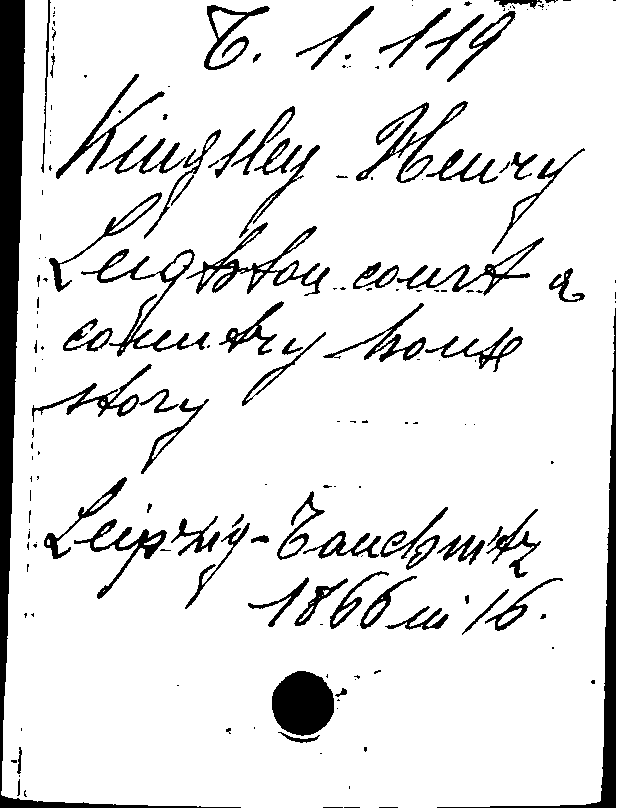 T. 1. 119
Kingsley Henry
Leighton court a
country house
story
Leipzig-Tauchnitz
1866 in 16.